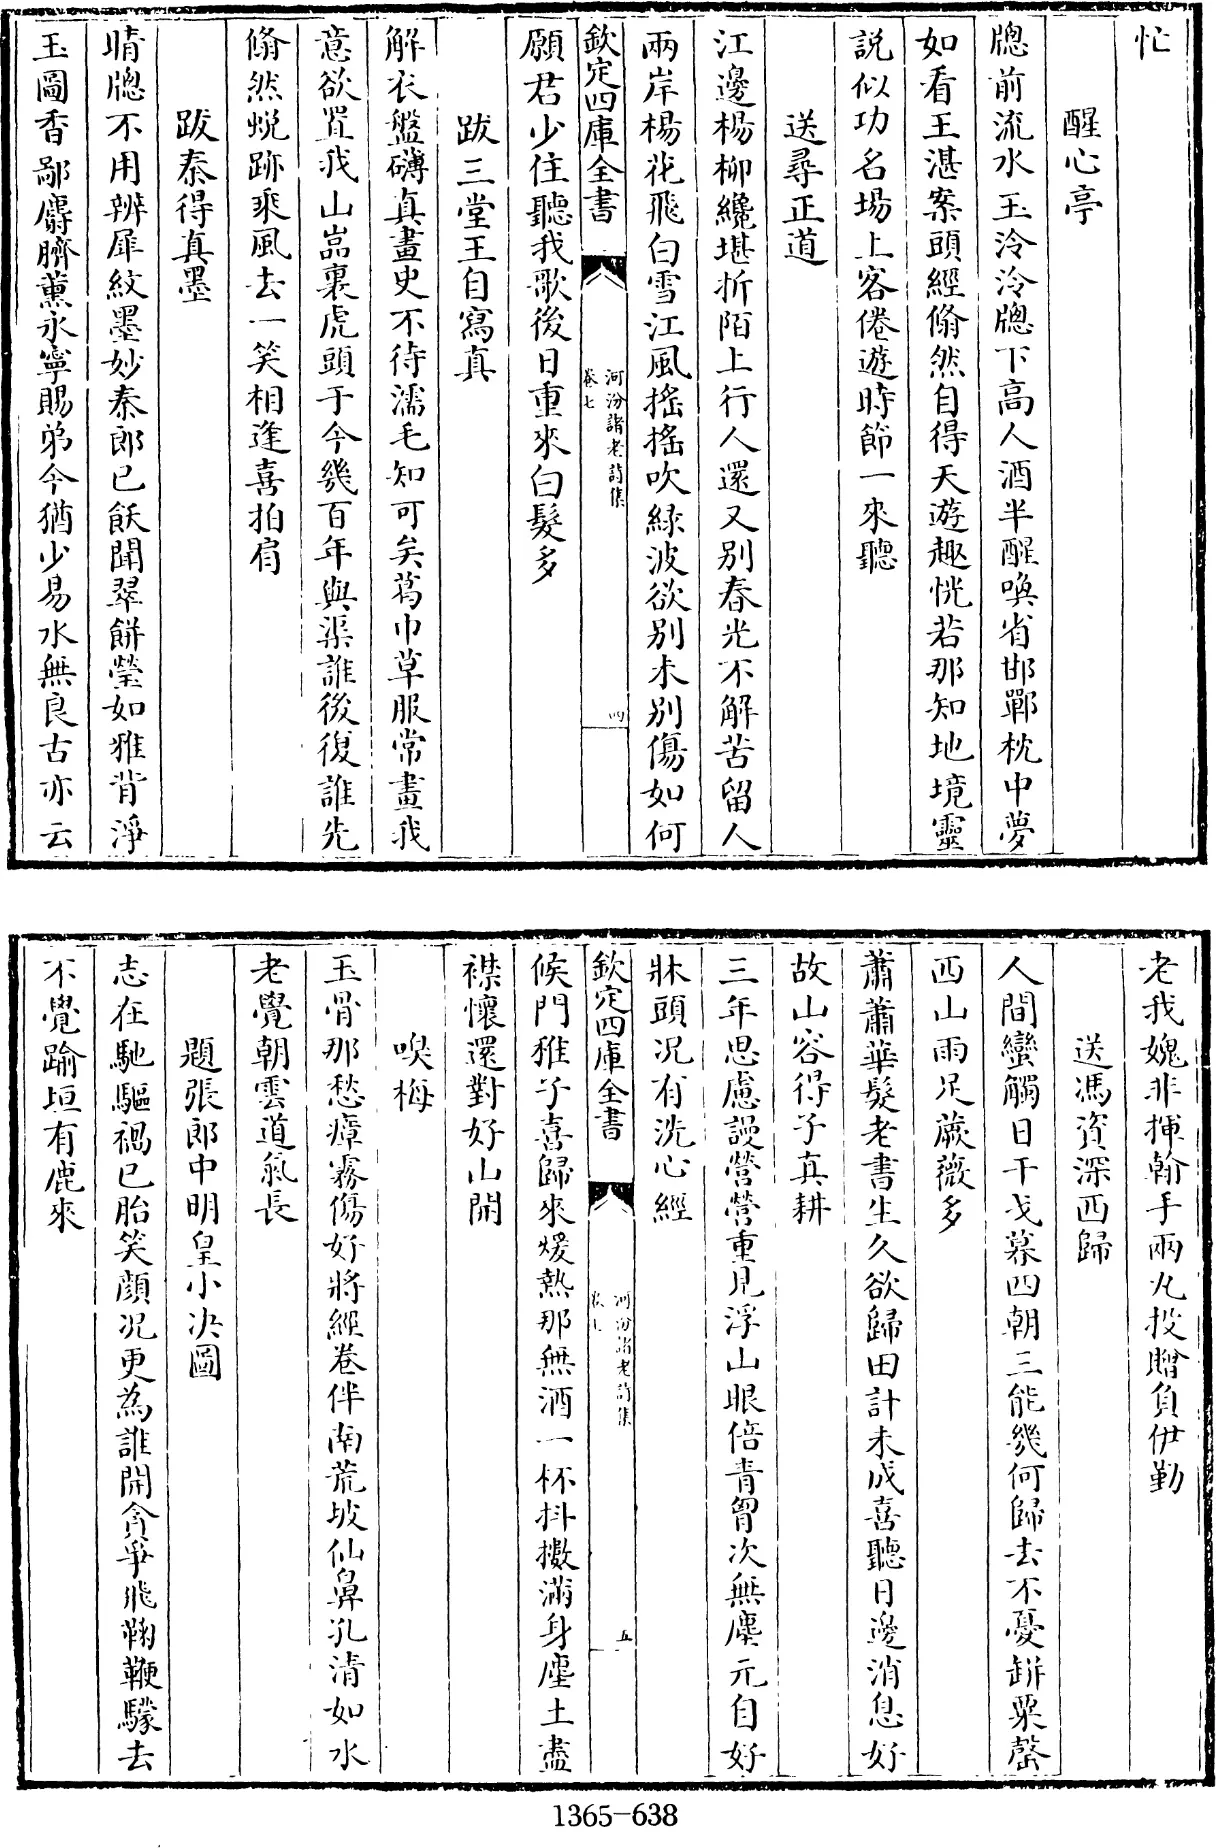 忙
醒心亭
牕前流水玉泠泠牕下高人酒半醒喚省邯鄲枕中夢
如看王湛案頭經翛然自得天遊趣恍若那知地境靈
説似功名場上客倦遊時節一來聽
送尋正道
江邊楊柳纔堪折陌上行人還又别春光不解苦留人
兩岸楊花飛白雪江風摇摇吹緑波欲别未别傷如何
欽定四庫全書
河汾諸老詩集
卷七
四
願君少住聽我歌後日重來白髮多
跋三堂王自寫真
解衣盤礴真畫史不待濡毛知可矣葛巾草服常畫我
意欲置我山嵓裏虎頭于今幾百年與渠誰後復誰先
翛然蜕跡乘風去一笑相逢喜拍肩
跋秦得真墨
晴牕不用辨犀紋墨妙秦郎已飫聞翠餅瑩如雅背淨
玉圖香鄙麝臍薫永寧賜弟今猶少易水無良古亦云
老我媿非揮翰手兩丸投贈負伊勤
送馮資深西歸
人間蠻觸日干戈暮四朝三能幾何歸去不憂缾粟罄
西山雨足蕨薇多
蕭蕭華髮老書生久欲歸田計未成喜聽日邊消息好
故山容得子真耕
三年思慮謾營營重見浮山眼倍青胷次無塵元自好
牀頭况有洗心經
欽定四庫全書
河汾諸老詩集
卷七
五
候門稚子喜歸來煖熱那無酒一杯抖擻滿身塵土盡
襟懷還對好山開
嗅梅
玉骨那愁瘴霧傷好將經卷伴南荒坡仙鼻孔清如水
老覺朝雲道氣長
題張郎中明皇小决圖
志在馳驅禍已胎笑顔况更為誰開貪爭飛鞠鞭驥去
不覺踰垣有鹿來
1365-638